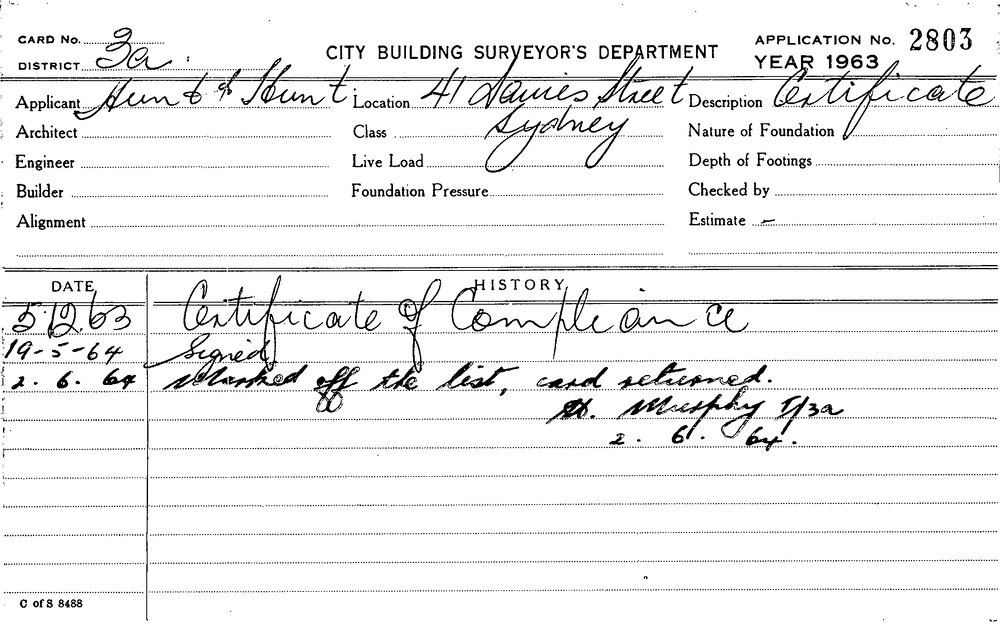 CARD No.
DISTRICT 3a
CITY BUILDING SURVEYOR'S DEPARTMENT
APPLICATION No. 2803
YEAR 1963
Applicant Hunt & Hunt Location 41 Davies Street Description Certificate
Sydney
Architect Class Nature of Foundation
Engineer Live Load Depth of Footings
Builder Foundation Pressure Checked by
Alignment Estimate –
DATE HISTORY
5.12.63 Certificate of Compliance
19-5-64 Signed
2. 6. 64 Marked off the list, card returned.
Murphy I/3a
2. 6. 64.
C of S 8488